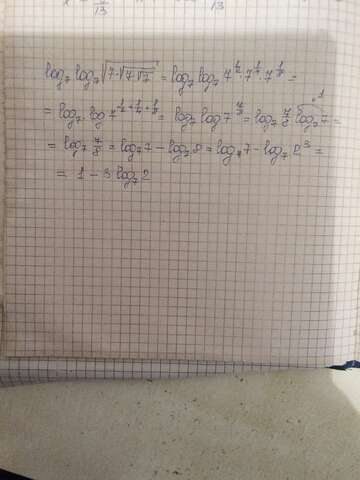 x = 3/13
13
log₇ log₇ √(7·√(7·√7)) = log₇ log₇ 7^(1/2) · 7^(1/4) · 7^(1/8) =
= log₇ · log 7^(1/2 + 1/4 + 1/8) = log₇ log 7^(7/8) = log₇ 7/8 log₇ 7 =
1
= log₇ 7/8 = log₇ 7 − log₇ 8 = log₇ 7 − log₇ 2³ =
= 1 − 3 log₇ 2